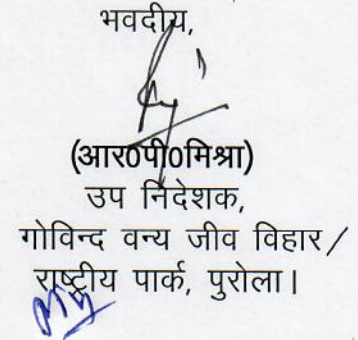 भवदीय,
(आर0पी0मिश्रा)
उप निदेशक,
गोविन्द वन्य जीव विहार/
राष्ट्रीय पार्क, पुरोला।